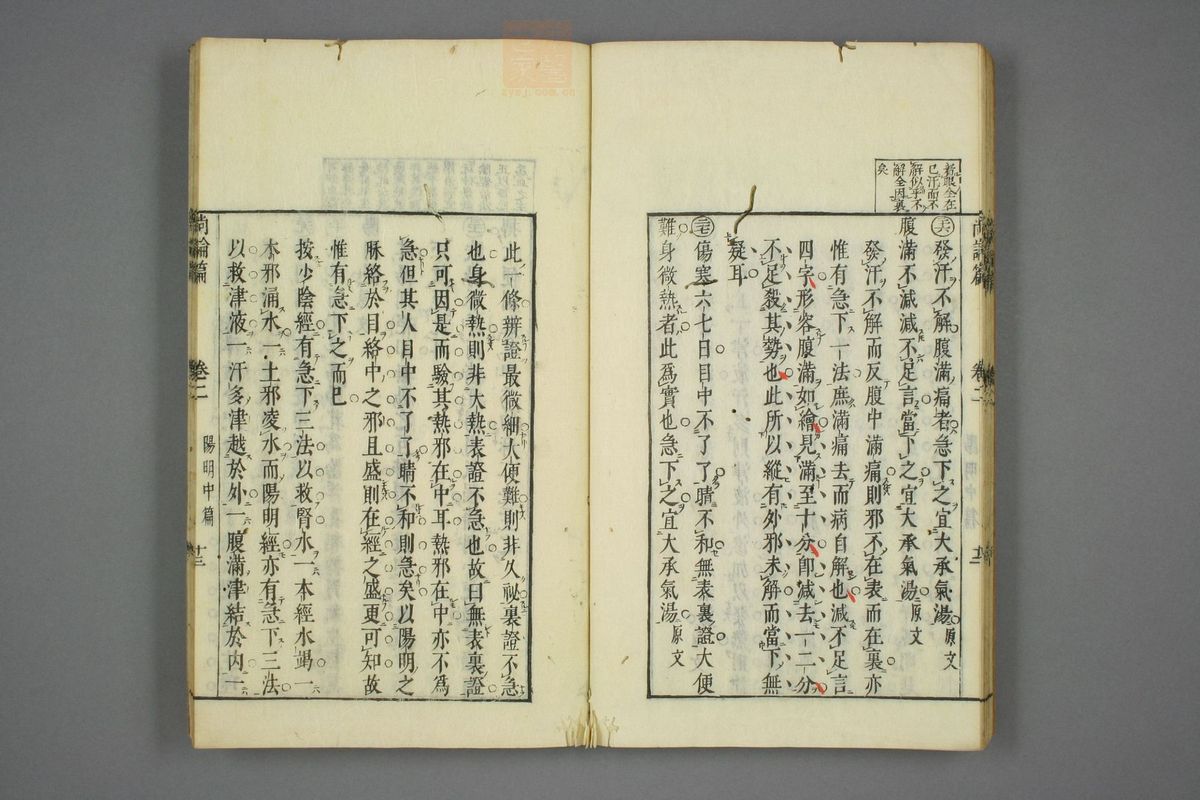 着眼全在
已汗而不
解似乎不
解全因裏
矣
尚論篇
卷二
㊅發汗不解腹滿痛者急下之宜大承氣湯原文
腹滿不減減不足言當下之宜大承氣湯原文
發汗不解而反腹中滿痛則邪不在表而在裏亦
惟有急下一法庶滿痛去而病自解也減不足言
四字形容腹滿如繪見滿至十分卽減去一二分
不足殺其勢也此所以縱有外邪未解而當下無
疑耳
傷寒六七日目中不了了睛不和無表裏證大便
難身微熱者此爲實也急下之宜大承氣湯原文
此一條辨證最微細大便難則非久祕裏證不急
也身微熱則非大熱表證不急也故曰無表裏證
只可因是而驗其熱邪在中耳熱邪在中亦不爲
急但其人目中不了了睛不和則急矣以陽明之
脉絡於目絡中之邪且盛則在經之盛更可知故
惟有急下之而已
按少陰經有急下三法以救腎水一本經水竭一
木邪涌水一土邪凌水而陽明經亦有急下三法
以救津液一汗多津越於外一腹滿津結於內一
尚論篇
卷二
陽明中篇
十三